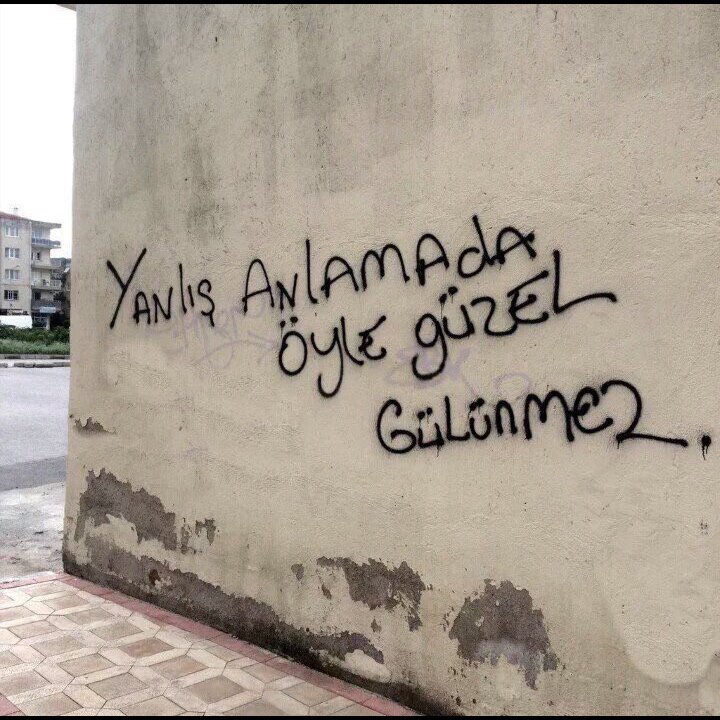 YANlIŞ ANlAMAdA
ÖYLE GÜZEL
GÜLÜNMEZ.